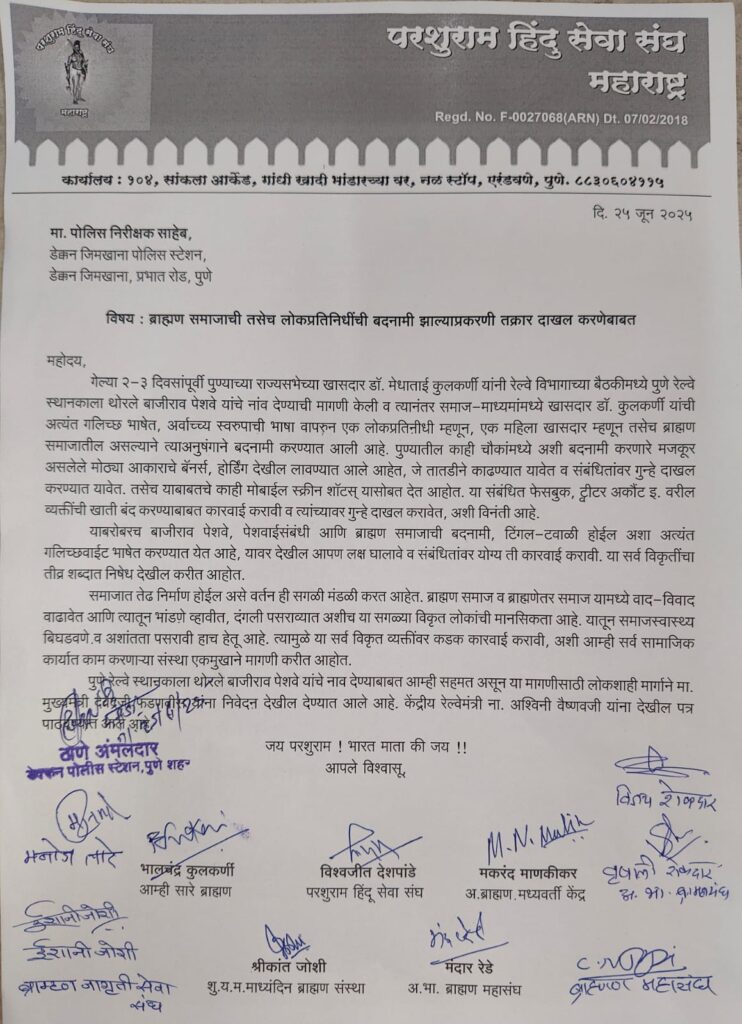 परशुराम हिंदु सेवा संघ
महाराष्ट्र
परशुराम हिंदु सेवा संघ
महाराष्ट्र
Regd. No. F-0027068(ARN) Dt. 07/02/2018
कार्यालय : १०४, सांकला आर्केड, गांधी खादी भांडारच्या वर, नळ स्टॉप, एरंडवणे, पुणे. ८८३०६०४११५
दि. २५ जून २०२५
मा. पोलिस निरीक्षक साहेब,
डेक्कन जिमखाना पोलिस स्टेशन,
डेक्कन जिमखाना, प्रभात रोड, पुणे
विषय : ब्राह्मण समाजाची तसेच लोकप्रतिनिधींची बदनामी झाल्याप्रकरणी तक्रार दाखल करणेबाबत
महोदय,
गेल्या २-३ दिवसांपूर्वी पुण्याच्या राज्यसभेच्या खासदार डॉ. मेधाताई कुलकर्णी यांनी रेल्वे विभागाच्या बैठकीमध्ये पुणे रेल्वे
स्थानकाला थोरले बाजीराव पेशवे यांचे नांव देण्याची मागणी केली व त्यानंतर समाज-माध्यमांमध्ये खासदार डॉ. कुलकर्णी यांची
अत्यंत गलिच्छ भाषेत, अर्वाच्च्य स्वरुपाची भाषा वापरुन एक लोकप्रतिनीधी म्हणून, एक महिला खासदार म्हणून तसेच ब्राह्मण
समाजातील असल्याने त्याअनुषंगाने बदनामी करण्यात आली आहे. पुण्यातील काही चौकांमध्ये अशी बदनामी करणारे मजकूर
असलेले मोठ्या आकाराचे बॅनर्स, होर्डिंग देखील लावण्यात आले आहेत, जे तातडीने काढण्यात यावेत व संबंधितांवर गुन्हे दाखल
करण्यात यावेत. तसेच याबाबतचे काही मोबाईल स्क्रीन शॉटस् यासोबत देत आहोत. या संबंधित फेसबुक, ट्वीटर अकौंट इ. वरील
व्यक्तींची खाती बंद करण्याबाबत कारवाई करावी व त्यांच्यावर गुन्हे दाखल करावेत, अशी विनंती आहे.
याबरोबरच बाजीराव पेशवे, पेशवाईसंबंधी आणि ब्राह्मण समाजाची बदनामी, टिंगल-टवाळी होईल अशा अत्यंत
गलिच्छवाईट भाषेत करण्यात येत आहे, यावर देखील आपण लक्ष घालावे व संबंधितांवर योग्य ती कारवाई करावी. या सर्व विकृतींचा
तीव्र शब्दात निषेध देखील करीत आहोत.
समाजात तेढ निर्माण होईल असे वर्तन ही सगळी मंडळी करत आहेत. ब्राह्मण समाज व ब्राह्मणेतर समाज यामध्ये वाद-विवाद
वाढावेत आणि त्यातून भांडणे व्हावीत, दंगली पसराव्यात अशीच या सगळ्या विकृत लोकांची मानसिकता आहे. यातून समाजस्वास्थ्य
बिघडवणे.व अशांतता पसरावी हाच हेतू आहे. त्यामुळे या सर्व विकृत व्यक्तींवर कडक कारवाई करावी, अशी आम्ही सर्व सामाजिक
कार्यात काम करणाऱ्या संस्था एकमुखाने मागणी करीत आहोत.
पुणे रेल्वे स्थानकाला थोरले बाजीराव पेशवे यांचे नाव देण्याबाबत आम्ही सहमत असून या मागणीसाठी लोकशाही मार्गाने मा.
मुख्यमंत्री देवेंद्रजी फडणवीस यांना निवेदन देखील देण्यात आले आहे. केंद्रीय रेल्वेमंत्री ना. अश्विनी वैष्णवजी यांना देखील पत्र
पाठवण्यात आले आहे.
जय परशुराम ! भारत माता की जय !!
आपले विश्वासू,
ठाणे अंमलदार
डेक्कन पोलीस स्टेशन, पुणे शहर
विजय शेकदार
मनोज तारे
भालचंद्र कुलकर्णी
आम्ही सारे ब्राह्मण
विश्वजीत देशपांडे
परशुराम हिंदु सेवा संघ
मकरंद माणकीकर
अ.ब्राह्मण.मध्यवर्ती केंद्र
वृषाली शेकदार
अ. भा. ब्राह्मण महासंघ
ईशानी जोशी
ईशानी जोशी
ब्राम्हण जागृती सेवा
संघ
श्रीकांत जोशी
शु.य.म.माध्यंदिन ब्राह्मण संस्था
मंदार रेडे
अ.भा. ब्राह्मण महासंघ
ब्राह्मण महासंघ